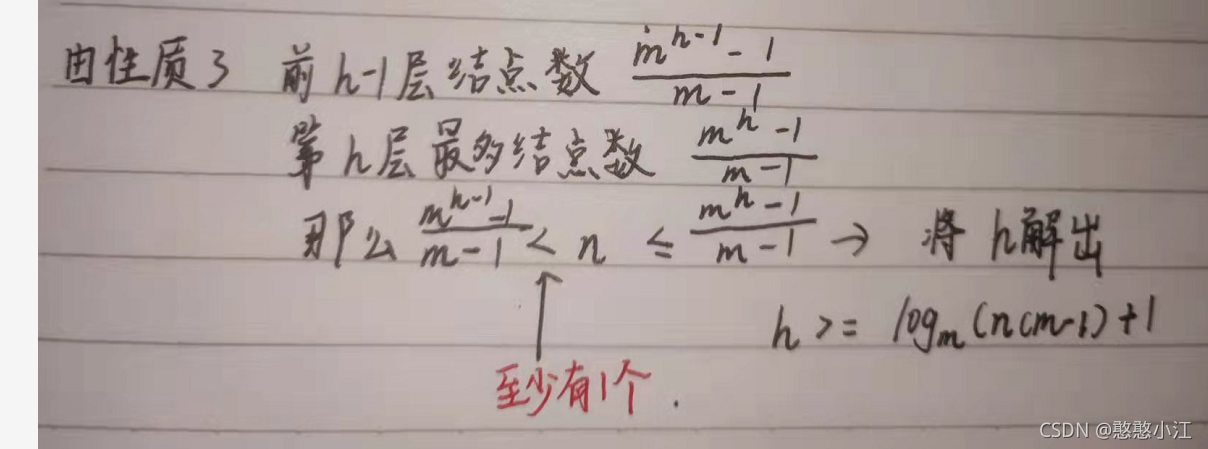 由性质3 前h-1层结点数 \frac{m^{h-1}-1}{m-1}
第h层最多结点数 \frac{m^h-1}{m-1}
那么 \frac{m^{h-1}-1}{m-1} < n ≤ \frac{m^h-1}{m-1} → 将h解出
h >= log_m(n(m-1)+1
至少有1个.
CSDN @憨憨小江